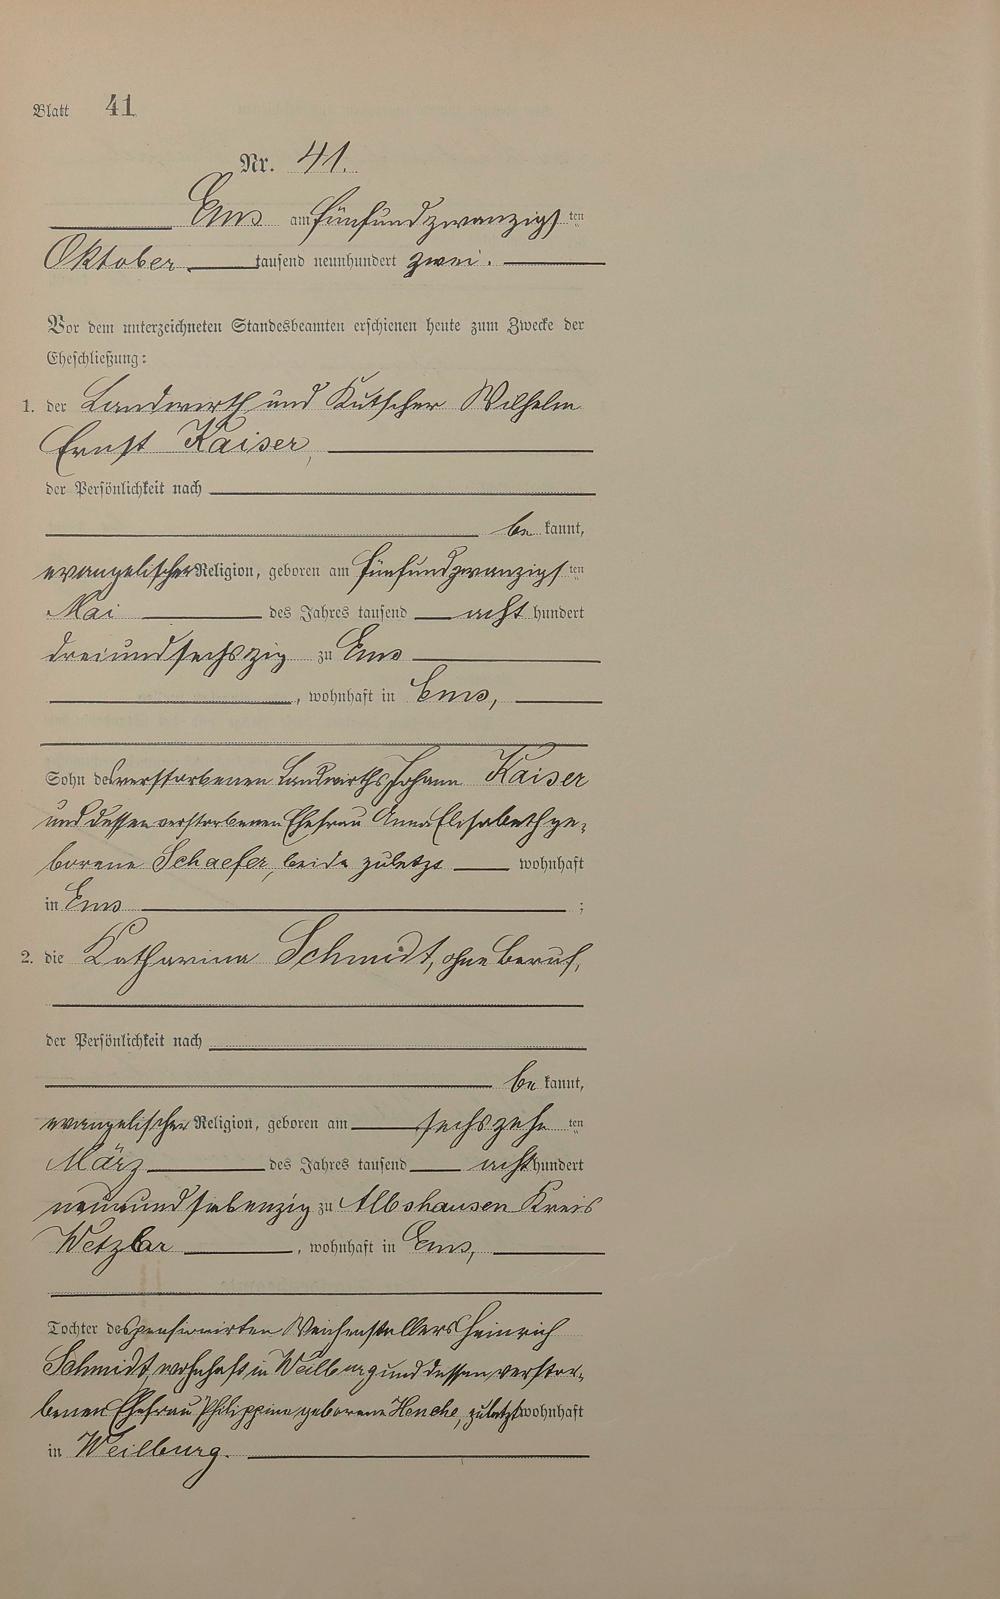 Blatt 41
Nr. 41.
Ems am fünfundzwanzigsten
Oktober tausend neunhundert zwei.
Vor dem unterzeichneten Standesbeamten erschienen heute zum Zwecke der
Eheschließung:
1. der Landwirth und Kutscher Wilhelm
Ernst Kaiser,
der Persönlichkeit nach
be kannt,
evangelischer Religion, geboren am fünfundzwanzigsten
Mai des Jahres tausend acht hundert
dreiundsechszig zu Ems
, wohnhaft in Ems,
Sohn des verstorbenen Landwirths Johann Kaiser
und dessen verstorbenen Ehefrau Anna Elisabeth ge-
borene Schaefer, beide zuletzt wohnhaft
in Ems ;
2. die Katharina Schmidt, ohne Beruf,
der Persönlichkeit nach
be kannt,
evangelischer Religion, geboren am sechszehn ten
März des Jahres tausend acht hundert
neunundsiebenzig zu Albshausen Kreis
Wetzlar , wohnhaft in Ems,
Tochter des pensionirten Weichenstellers Heinrich
Schmidt, wohnhaft in Weilburg und dessen verstor-
benen Ehefrau Philippine geborene Henche, zuletzt wohnhaft
in Weilburg.